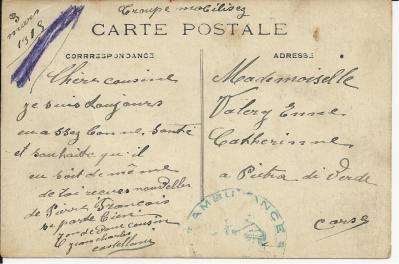 8
mars
1918
Troupe mobilisez
CARTE POSTALE
CORRRESPONDANCE
ADRESSE
Chère cousine
je suis toujours
en assez bonne santé
et souhaite qu'il
en soit de même
de toi reçues nouvelles
de Pierre François
se porte bien
ton cousin
Jean Charles
Castellani
Mademoiselle
Valery Enne
Catherinne
a Pietra di Verde
Corse
AMBULANCE